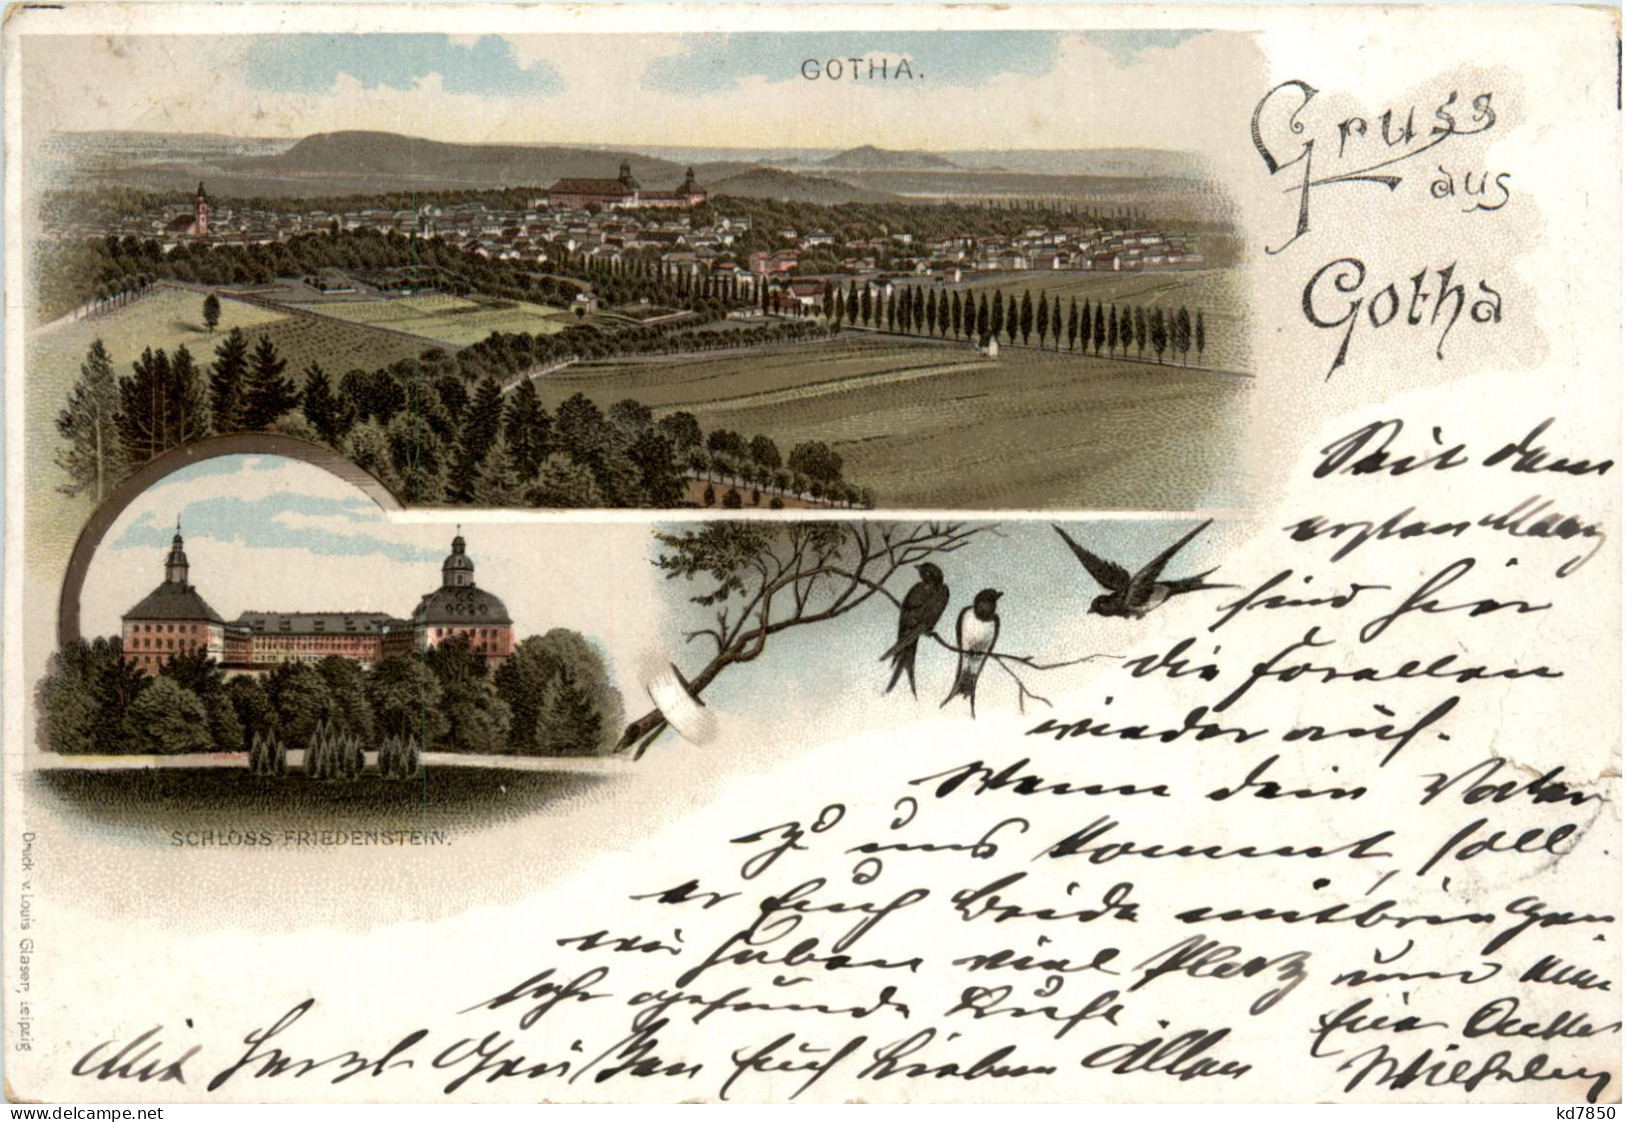 GOTHA.
Gruss
aus
Gotha
SCHLOSS FRIEDENSTEIN.
Druck v. Louis Glaser, Leipzig
Seit dem
ersten März
sind hier
die Forellen
wieder auf.
Wenn dein Vater
zu uns kommt, soll
er Euch Beide mitbringen
wir haben viel Platz und
sehr gesunde Luft.
Mit herzl. Grüßen Euch Lieben Allen
Euer Onkel
Wilhelm
kd7850